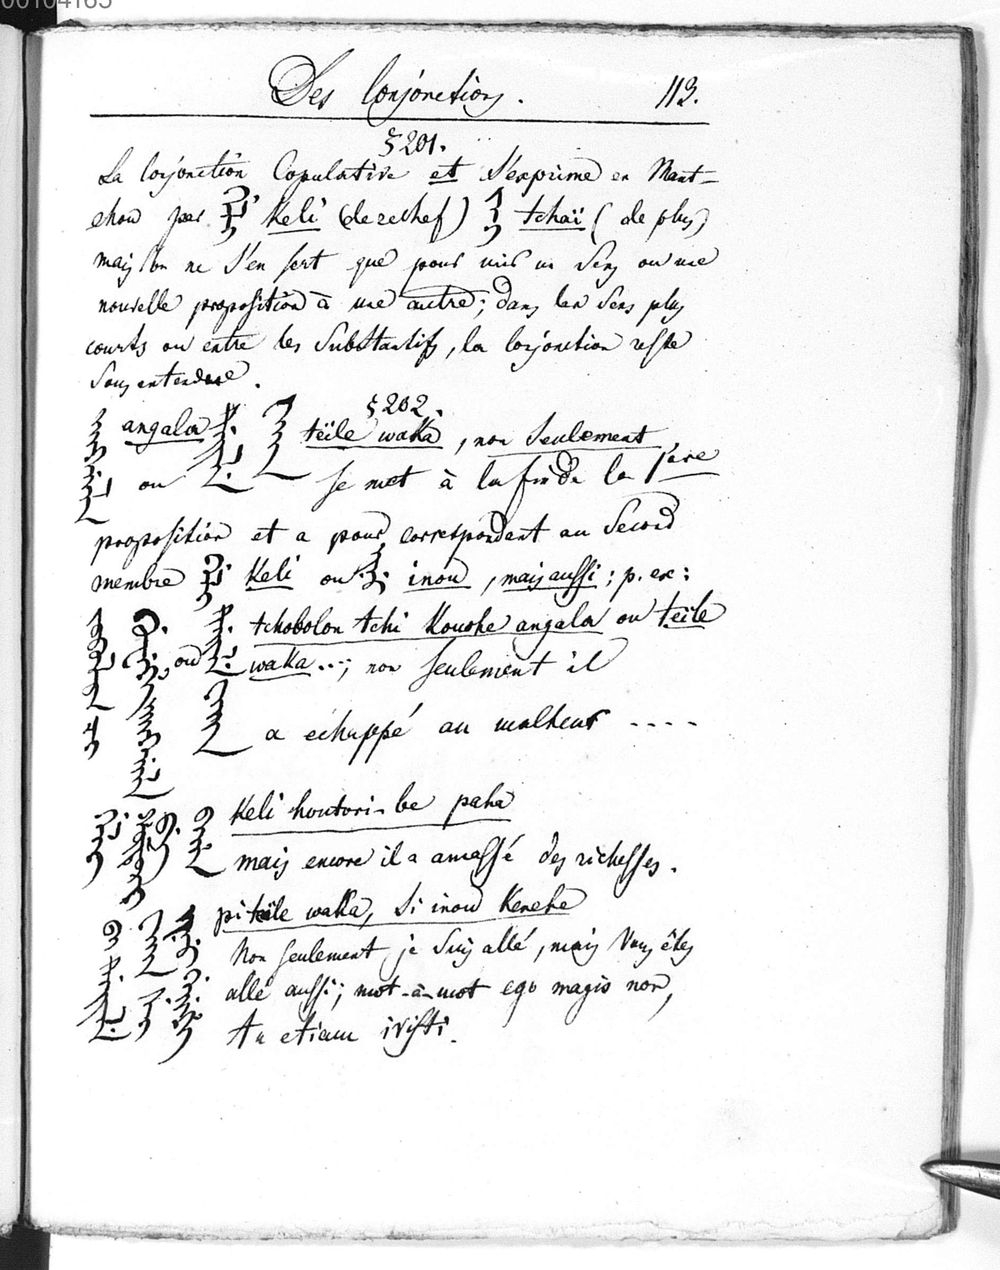 00104165
Des Conjonctions. 113.
§ 201.
La Conjonction Copulative et s'exprime en Mant=
chou par ᡤᡝᠯᡳ Keli (derechef) ᠵᠠᡳ tchaï (de plus)
mais on ne s'en sert que pour unir un sens ou une
nouvelle proposition à une autre; dans les sens plus
courts ou entre les Substantifs, la Conjonction reste
sous entendue.
§ 202.
angala ou teïle waka, non seulement,
se met à la fin de la 1ere
proposition et a pour correspondent au Second
membre ᡤᡝᠯᡳ Keli ou ᡳᠨᡠ inou, mais aussi; p. ex:
tchobolon tchi Kouohe angala ou teïle
ou waka...; non seulement il
a échappé au malheur ....
Keli houtori-be paha
mais encore il a amassé des richesses.
pi teïle waka, Si inou Kenehe
Non seulement je suis allé, mais Vous êtes
allé aussi; mot-à-mot ego magis non,
tu etiam ivisti.